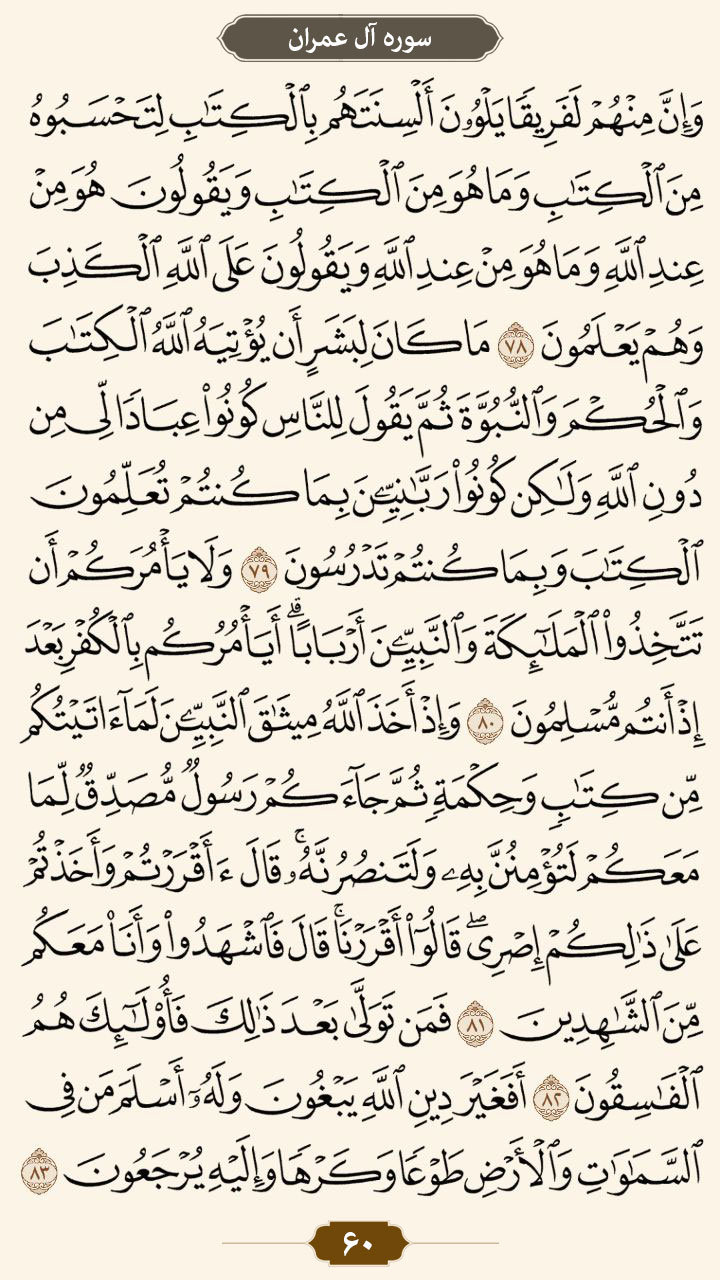 سوره آل عمران
وَإِنَّ مِنْهُمْ لَفَرِيقًا يَلْوُۥنَ أَلْسِنَتَهُم بِٱلْكِتَٰبِ لِتَحْسَبُوهُ
مِنَ ٱلْكِتَٰبِ وَمَا هُوَ مِنَ ٱلْكِتَٰبِ وَيَقُولُونَ هُوَ مِنْ
عِندِ ٱللَّهِ وَمَا هُوَ مِنْ عِندِ ٱللَّهِ وَيَقُولُونَ عَلَى ٱللَّهِ ٱلْكَذِبَ
وَهُمْ يَعْلَمُونَ ٧٨ مَا كَانَ لِبَشَرٍ أَن يُؤْتِيَهُ ٱللَّهُ ٱلْكِتَٰبَ
وَٱلْحُكْمَ وَٱلنُّبُوَّةَ ثُمَّ يَقُولَ لِلنَّاسِ كُونُوا۟ عِبَادًا لِّى مِن
دُونِ ٱللَّهِ وَلَٰكِن كُونُوا۟ رَبَّٰنِيِّۦنَ بِمَا كُنتُمْ تُعَلِّمُونَ
ٱلْكِتَٰبَ وَبِمَا كُنتُمْ تَدْرُسُونَ ٧٩ وَلَا يَأْمُرَكُمْ أَن
تَتَّخِذُوا۟ ٱلْمَلَٰٓئِكَةَ وَٱلنَّبِيِّۦنَ أَرْبَابًا ۗ أَيَأْمُرُكُم بِٱلْكُفْرِ بَعْدَ
إِذْ أَنتُم مُّسْلِمُونَ ٨٠ وَإِذْ أَخَذَ ٱللَّهُ مِيثَٰقَ ٱلنَّبِيِّۦنَ لَمَآ ءَاتَيْتُكُم
مِّن كِتَٰبٍ وَحِكْمَةٍ ثُمَّ جَآءَكُمْ رَسُولٌ مُّصَدِّقٌ لِّمَا
مَعَكُمْ لَتُؤْمِنُنَّ بِهِۦ وَلَتَنصُرُنَّهُۥ ۚ قَالَ ءَأَقْرَرْتُمْ وَأَخَذْتُمْ
عَلَىٰ ذَٰلِكُمْ إِصْرِى ۖ قَالُوٓا۟ أَقْرَرْنَا ۚ قَالَ فَٱشْهَدُوا۟ وَأَنَا۠ مَعَكُم
مِّنَ ٱلشَّٰهِدِينَ ٨١ فَمَن تَوَلَّىٰ بَعْدَ ذَٰلِكَ فَأُو۟لَٰٓئِكَ هُمُ
ٱلْفَٰسِقُونَ ٨٢ أَفَغَيْرَ دِينِ ٱللَّهِ يَبْغُونَ وَلَهُۥٓ أَسْلَمَ مَن فِى
ٱلسَّمَٰوَٰتِ وَٱلْأَرْضِ طَوْعًا وَكَرْهًا وَإِلَيْهِ يُرْجَعُونَ ٨٣
۶۰